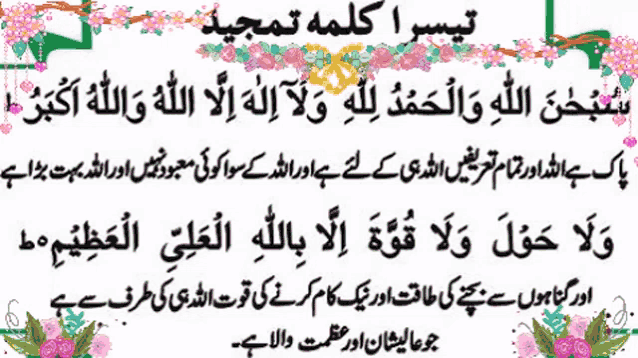 تیسرا کلمہ تمجید
سُبْحٰنَ اللّٰهِ وَالْحَمْدُ لِلّٰهِ وَلَآ اِلٰهَ اِلَّا اللّٰهُ وَاللّٰهُ اَكْبَرُ ط
پاک ہے اللہ اور تمام تعریفیں اللہ ہی کے لئے ہے اور اللہ کے سوا کوئی معبود نہیں اور اللہ بہت بڑا ہے
وَلَا حَوْلَ وَلَا قُوَّةَ اِلَّا بِاللّٰهِ الْعَلِيِّ الْعَظِيْمِ ٥ط
اور گناہوں سے بچنے کی طاقت اور نیک کام کرنے کی قوت اللہ ہی کی طرف سے ہے
جو عالیشان اور عظمت والا ہے۔